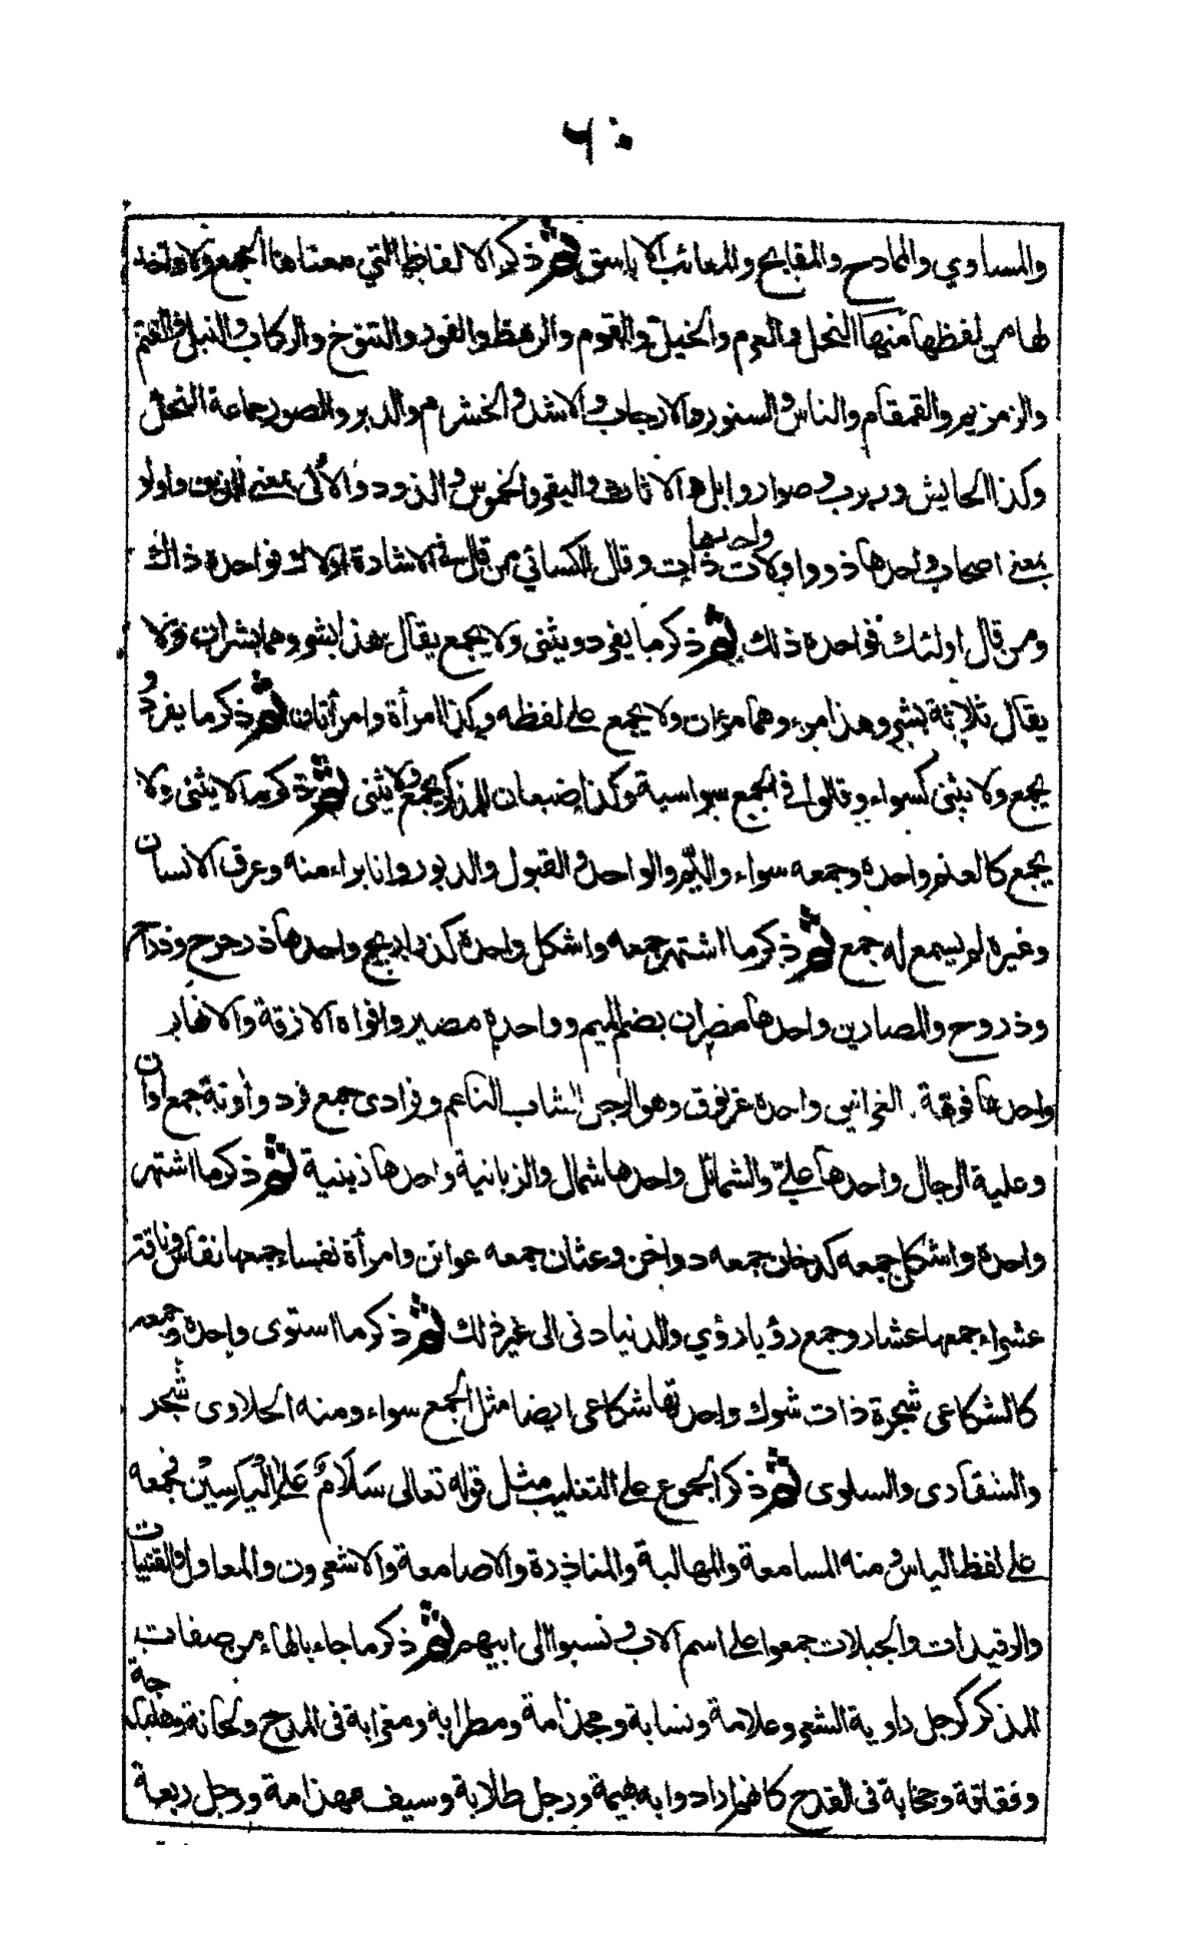 ٦٠
والمساوي والممادح والمقابح والمعائب الا ياسق ثم ذكر الالفاظ التي معناها الجمع ولا واحد
لها من لفظها منها النحل والعرم والخيل والقوم والرهط والفور والتنوخ والركاب والنبل والغنم
والزمزيم والقمقام والناس والسنور والارجاب والاشد والخشرم والدبر والصور جماعة النحل
وكذا الحايش وربرب وصوار وابل والاثاث والبقر والخموس والذود والألى بمعنى الذين واولو
بمعنى اصحاب واحدها ذو واولات واحدها ذات وقال الكسائي من قال في الاشارة اولاك فواحده ذاك
ومن قال اولئك فواحده ذلك ثم ذكر ما يفرد ويثنى ولا يجمع يقال هذا بشر وهما بشران ولا
يقال ثلاثة بشر وهذا مرء وهما مرءان ولا يجمع على لفظه وكذا امرأة وامرأتان ثم ذكر ما يفرد و
يجمع ولا يثنى كسواء وقالوا في الجمع سواسية وكذا ضبعان للمذكر يجمع ولا يثنى ثم ذكر ما لا يثنى ولا
يجمع كالعنم واحده وجمعه سواء واليم والواحد والقبول والدبور وانا براء منه وعرق الانسان
وغيره لم يسمع له جمع ثم ذكر ما اشتهر جمعه واشكل واحده كذراريح واحدها ذرحرح وذراح
وذروح والمصارين واحدها مصران بضم الميم وواحده مصير وافواه الازقة والانهار
واحدها فوهة . الغرانيق واحده غرنوق وهو الرجل الشاب الناعم وفرادى جمع فرد وآونة جمع اوان
وعلية الرجال واحدها علىّ والشمائل واحدها شمال والزبانية واحدها زبنية ثم ذكر ما اشتهر
واحده واشكل جمعه كدخان جمعه دواخن وعثان جمعه عواثن وامرأة نفساء جمعها نفاس وناقة
عشراء جمعها عشار وجمع رؤيا رؤي والدنيا دنى الى غير ذلك ثم ذكر ما استوى واحده وجمعه
كالشكاعى شجرة ذات شوك واحدتها شكاعى ايضا مثل الجمع سواء ومنه الحلاوى شجر
والشقارى والسلوى ثم ذكر الجموع على التغليب مثل قوله تعالى سَلَامٌ عَلَى اِلْيَاسِيْن فجمعه
على لفظ الياس ومنه المسامعة والمهالبة والمناذرة والاصامعة والاشعرون والمعاول والقتيبات
والرقيدات والجبلات جمعوا على اسم الاب ونسبوا الى ابيهم ثم ذكر ما جاء بالهاء من صفات
المذكر كرجل راوية الشعر وعلامة ونسابة ومجذامة ومطرابة ومعزابة فى المدح ولحانة وهلباجة
وفقاقة وجخابة فى القدح كانهم ارادوا به بهيمة ورجل طلابة وسيف مهذامة ورجل ربعة